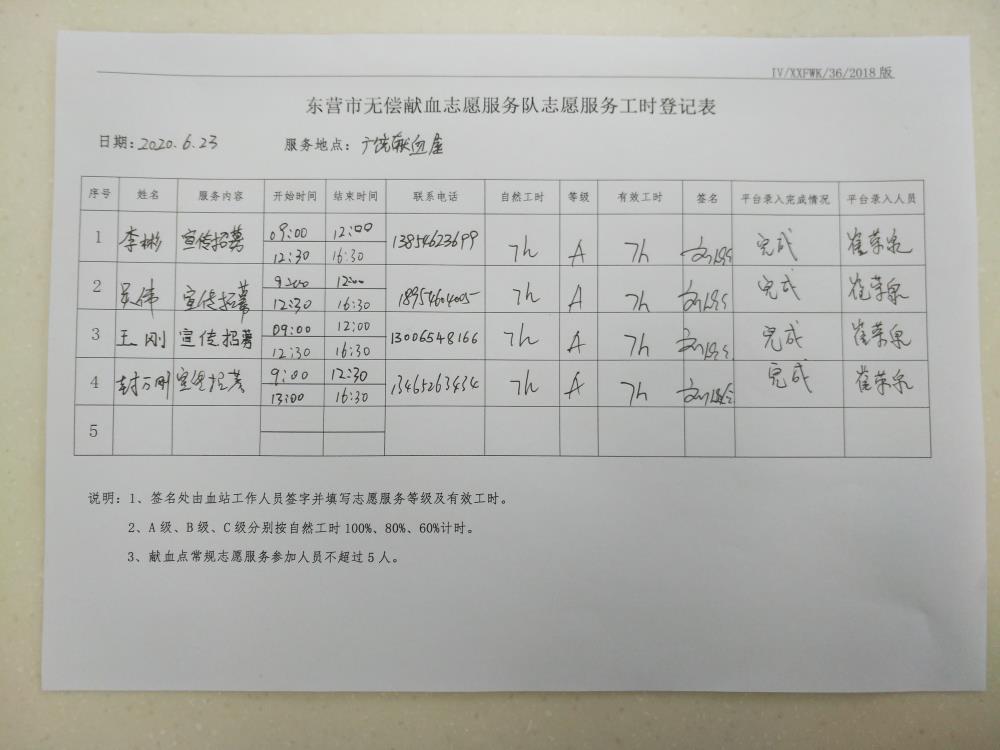 IV/XXFWK/36/2018版
东营市无偿献血志愿服务队志愿服务工时登记表
日期:2020.6.23 服务地点:广饶献血屋
序号 姓名 服务内容 开始时间 结束时间 联系电话 自然工时 等级 有效工时 签名 平台录入完成情况 平台录入人员
1 李彬 宣传招募 09:00 12:00 13854623699 7h A 7h 完成 崔荣泉
12:30 16:30
2 吴伟 宣传招募 9:00 12:00 18954604005 7h A 7h 完成 崔荣泉
12:30 16:30
3 王刚 宣传招募 09:00 12:00 13006548166 7h A 7h 完成 崔荣泉
12:30 16:30
4 封万刚 宣传招募 9:00 12:30 13465263434 7h A 7h 完成 崔荣泉
13:00 16:30
5
说明:1、签名处由血站工作人员签字并填写志愿服务等级及有效工时。
2、A级、B级、C级分别按自然工时100%、80%、60%计时。
3、献血点常规志愿服务参加人员不超过5人。